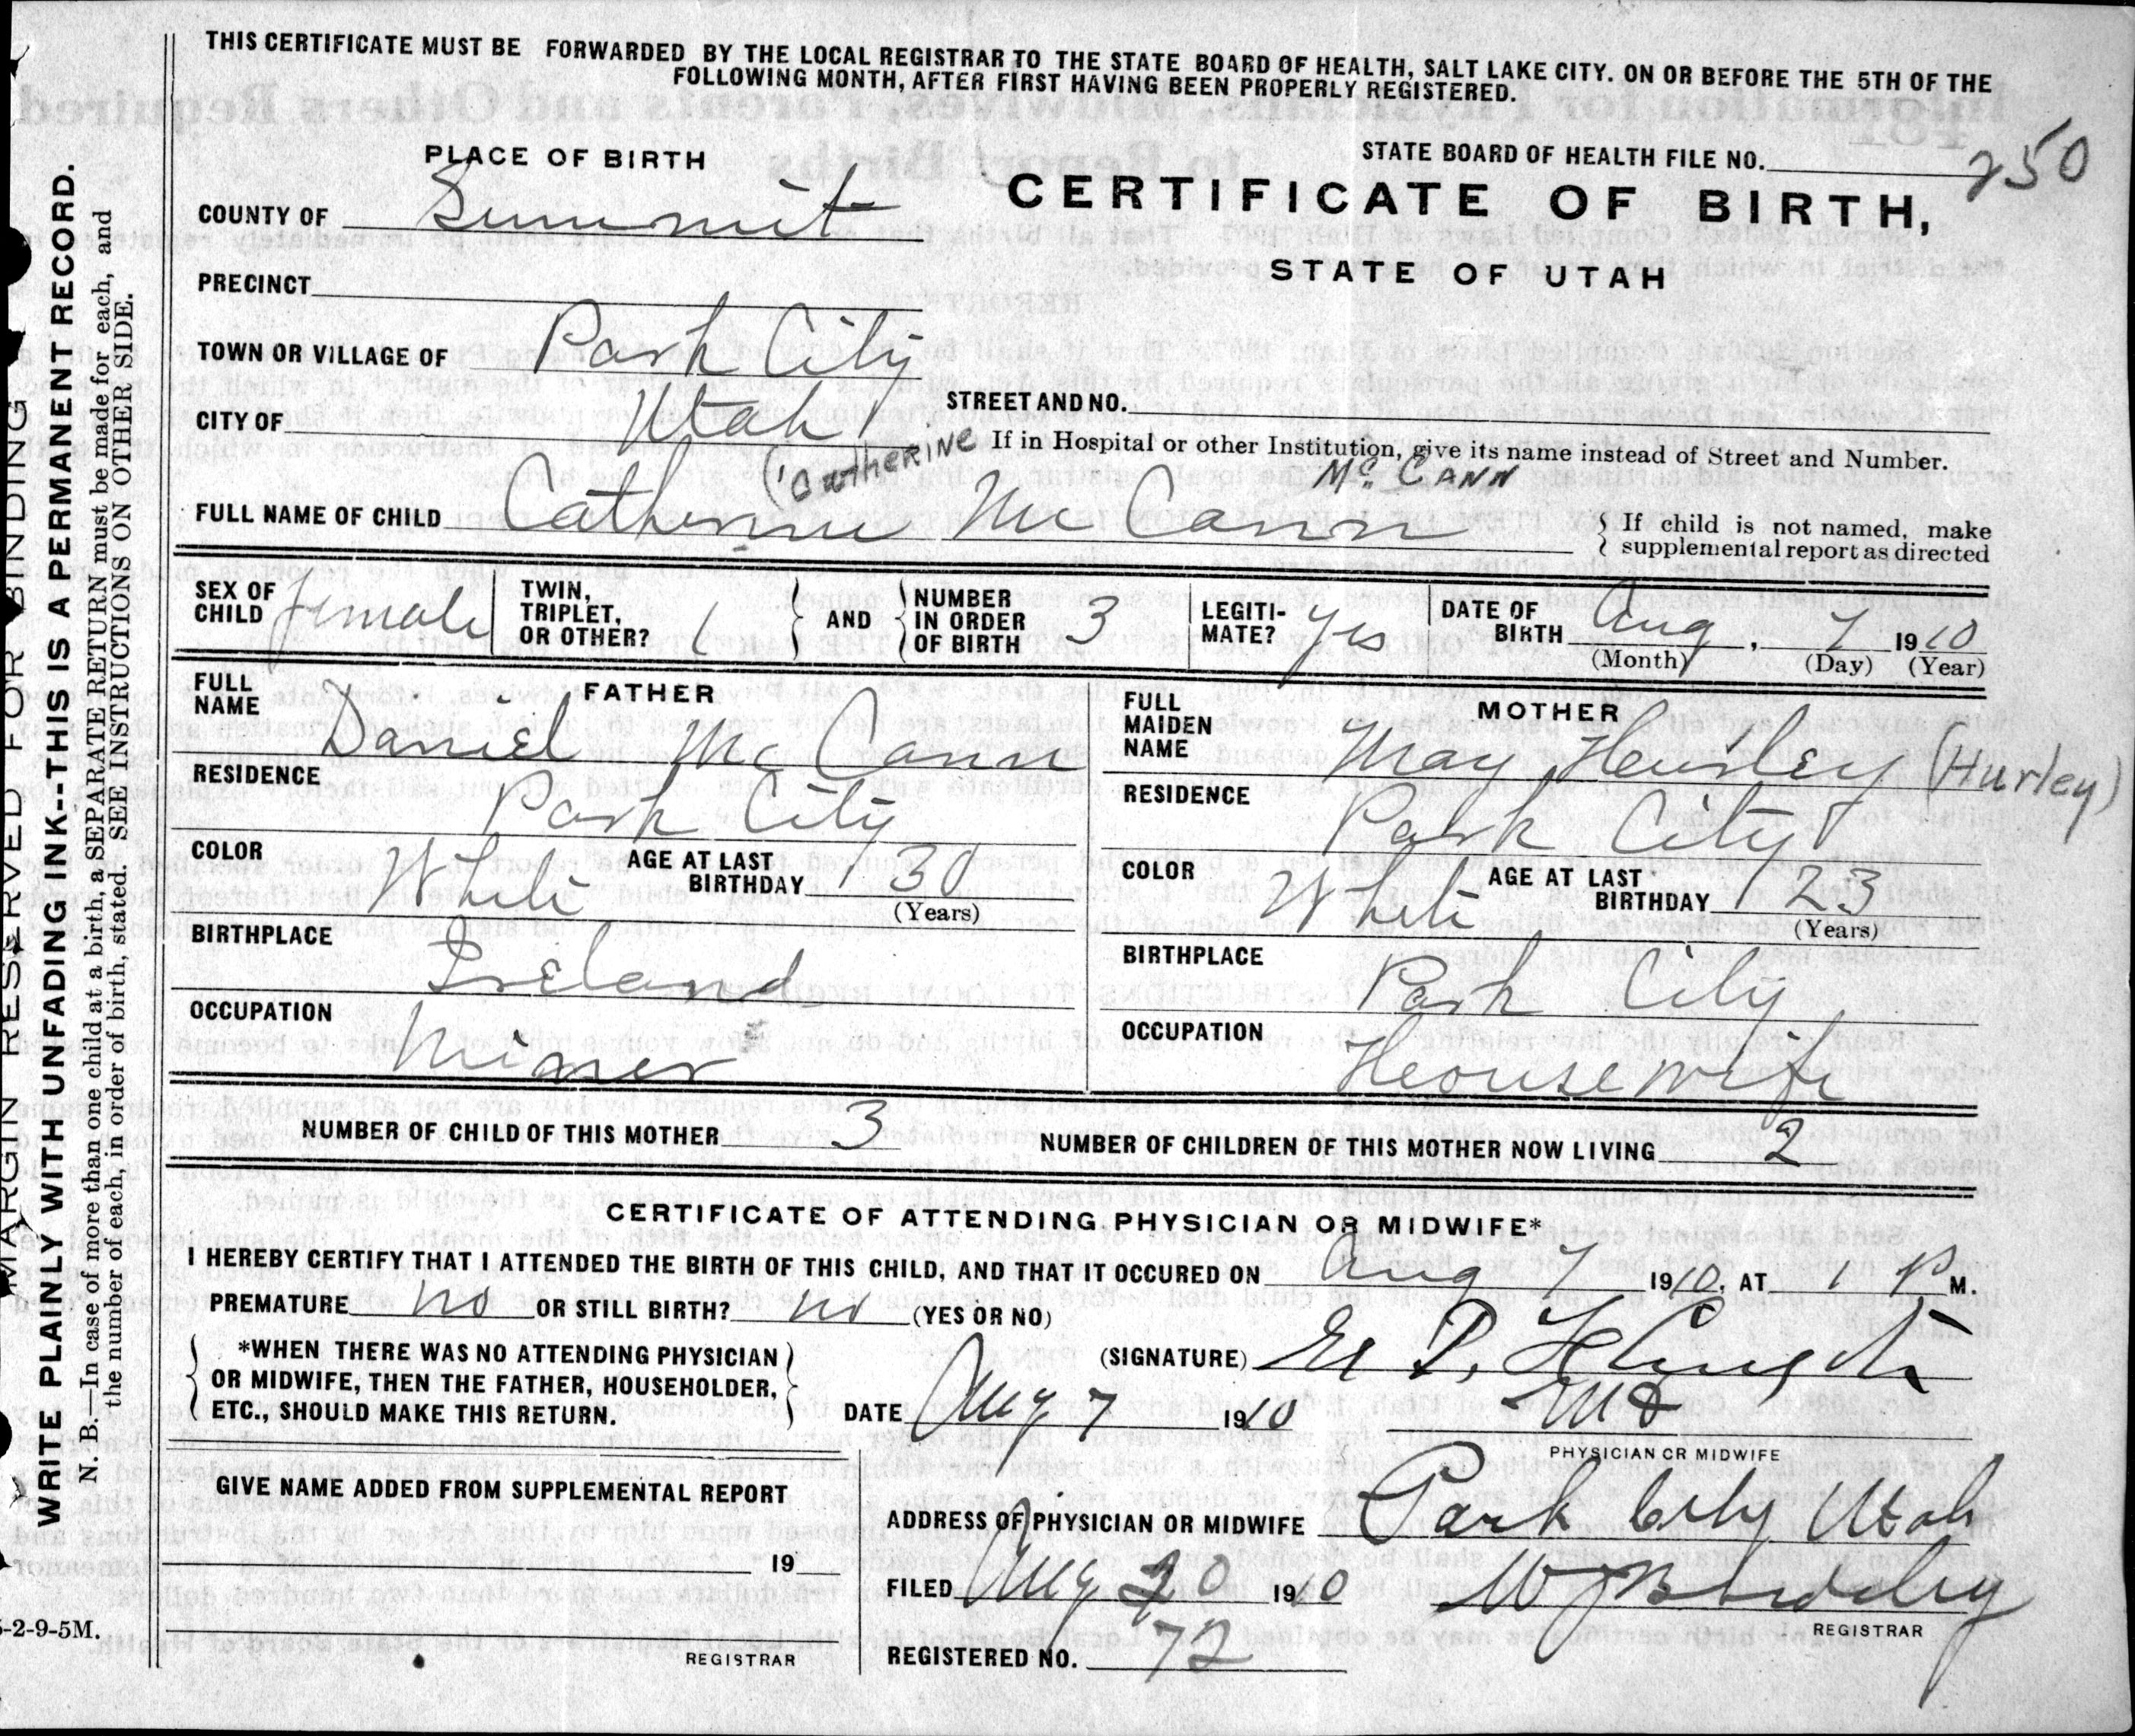 THIS CERTIFICATE MUST BE FORWARDED BY THE LOCAL REGISTRAR TO THE STATE BOARD OF HEALTH, SALT LAKE CITY. ON OR BEFORE THE 5TH OF THE
FOLLOWING MONTH, AFTER FIRST HAVING BEEN PROPERLY REGISTERED.
MARGIN RESERVED FOR BINDING
WRITE PLAINLY WITH UNFADING INK--THIS IS A PERMANENT RECORD.
N. B.—In case of more than one child at a birth, a SEPARATE RETURN must be made for each, and
the number of each, in order of birth, stated. SEE INSTRUCTIONS ON OTHER SIDE.
PLACE OF BIRTH
STATE BOARD OF HEALTH FILE NO. 250
CERTIFICATE OF BIRTH,
STATE OF UTAH
COUNTY OF Summit
PRECINCT
TOWN OR VILLAGE OF Park City
CITY OF Utah
STREET AND NO.
If in Hospital or other Institution, give its name instead of Street and Number.
(CatHERINE Mc CANN
FULL NAME OF CHILD Catherine Mc Cann
If child is not named, make
supplemental report as directed
SEX OF CHILD female
TWIN, TRIPLET, OR OTHER? 1
AND
NUMBER IN ORDER OF BIRTH 3
LEGITI-MATE? yes
DATE OF BIRTH Aug, 7 1910
(Month) (Day) (Year)
FATHER
FULL NAME Daniel Mc Cann
RESIDENCE Park City
COLOR White AGE AT LAST BIRTHDAY 30
(Years)
BIRTHPLACE Ireland
OCCUPATION Miner
MOTHER
FULL MAIDEN NAME May Heurley (Hurley)
RESIDENCE Park City
COLOR White AGE AT LAST BIRTHDAY 23
(Years)
BIRTHPLACE Park City
OCCUPATION Housewife
NUMBER OF CHILD OF THIS MOTHER 3
NUMBER OF CHILDREN OF THIS MOTHER NOW LIVING 2
CERTIFICATE OF ATTENDING PHYSICIAN OR MIDWIFE*
I HEREBY CERTIFY THAT I ATTENDED THE BIRTH OF THIS CHILD, AND THAT IT OCCURED ON Aug 7 1910, AT 1 P M.
PREMATURE no OR STILL BIRTH? no (YES OR NO)
*WHEN THERE WAS NO ATTENDING PHYSICIAN
OR MIDWIFE, THEN THE FATHER, HOUSEHOLDER,
ETC., SHOULD MAKE THIS RETURN.
(SIGNATURE)
MD
DATE Aug 7 1910
PHYSICIAN OR MIDWIFE
GIVE NAME ADDED FROM SUPPLEMENTAL REPORT
19
REGISTRAR
ADDRESS OF PHYSICIAN OR MIDWIFE Park City Utah
FILED Aug 20 1910
REGISTRAR
REGISTERED NO. 72
-2-9-5M.